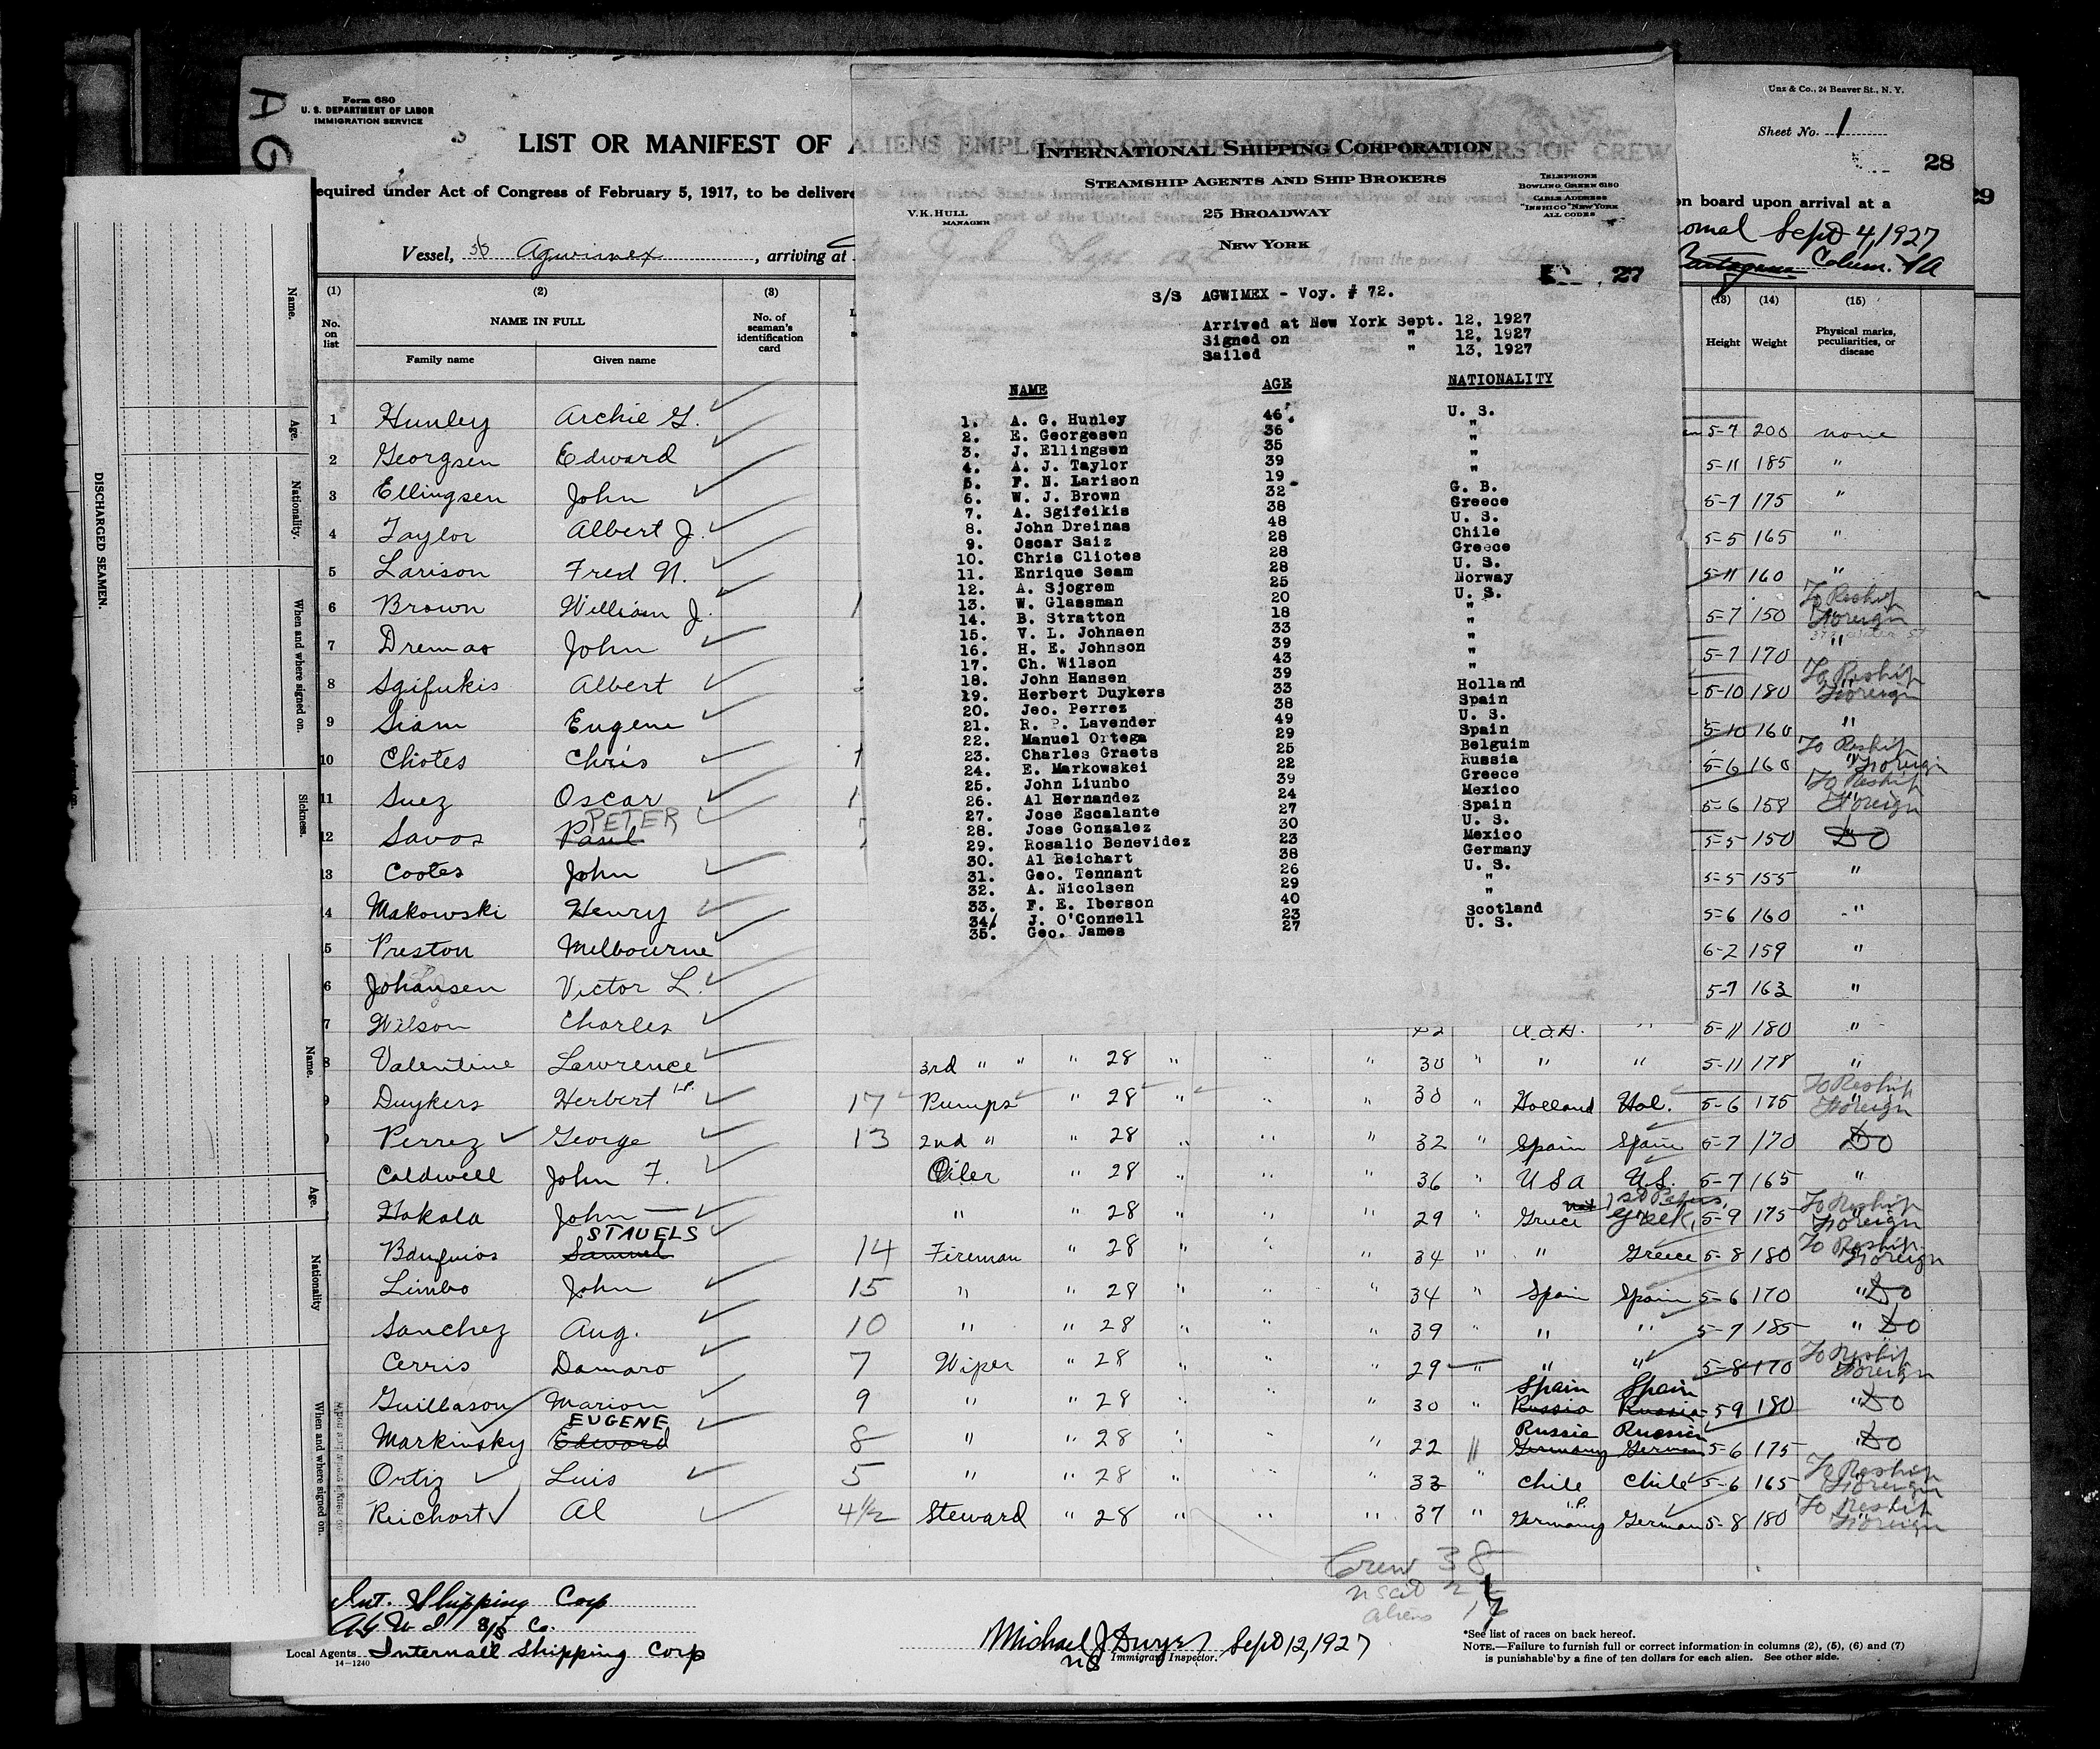 AG
Form 680
U. S. DEPARTMENT OF LABOR
IMMIGRATION SERVICE
Unz & Co., 24 Beaver St., N. Y.
Sheet No. 1
28
29
LIST OR MANIFEST OF ALIENS EMPLOYED ON THE VESSEL AS MEMBERS OF CREW
equired under Act of Congress of February 5, 1917, to be delivere
on board upon arrival at a
Vessel, SS Agwimex, arriving at
Sept 4, 1927
Cartagena Colum. SA
INTERNATIONAL SHIPPING CORPORATION
STEAMSHIP AGENTS AND SHIP BROKERS
25 BROADWAY
NEW YORK
V. K. HULL
MANAGER
TELEPHONE
BOWLING GREEN 6180
CABLE ADDRESS
"INSHICO" NEW YORK
ALL CODES
27
S/S AGWIMEX - Voy. # 72.
Arrived at New York Sept. 12, 1927
Signed on " 12, 1927
Sailed " 13, 1927
NAME AGE NATIONALITY
1. A. G. Hunley 46 U. S.
2. E. Georgesen 36 "
3. J. Ellingsen 35 "
4. A. J. Taylor 39 "
5. F. N. Larison 19 "
6. W. J. Brown 32 G. B.
7. A. Sgifeikis 38 Greece
8. John Dreinas 48 U. S.
9. Oscar Saiz 28 Chile
10. Chris Cliotes 28 Greece
11. Enrique Seam 28 U. S.
12. A. Sjogrem 25 Norway
13. W. Glassman 20 U. S.
14. B. Stratton 18 "
15. V. L. Johnaen 33 "
16. H. E. Johnson 39 "
17. Ch. Wilson 43 "
18. John Hansen 39 "
19. Herbert Duykers 33 Holland
20. Jeo. Perrez 38 Spain
21. R. P. Lavender 49 U. S.
22. Manuel Ortega 29 Spain
23. Charles Graets 25 Belguim
24. E. Markowskei 22 Russia
25. John Liunbo 39 Greece
26. Al Hernandez 24 Mexico
27. Jose Escalante 27 Spain
28. Jose Gonzalez 30 U. S.
29. Rosalio Benevidez 23 Mexico
30. Al Reichart 38 Germany
31. Geo. Tennant 26 U. S.
32. A. Nicolsen 29 "
33. F. E. Iberson 40 "
34. J. O'Connell 23 Scotland
35. Geo. James 27 U. S.
(1) (2) (3) (13) (14) (15)
No. on list
NAME IN FULL
Family name Given name
No. of seaman's identification card
Height Weight
Physical marks, peculiarities, or disease
1 Hunley Archie G. 5-7 200 none
2 Georgsen Edward 5-11 185 "
3 Ellingsen John 5-7 175 "
4 Taylor Albert J. 5-5 165 "
5 Larison Fred N. 5-11 160 "
6 Brown William J. 5-7 150 To Reship Foreign
7 Dremas John 5-7 170 "
8 Sgifukis Albert 5-10 180 To Reship Foreign
9 Siam Eugene 5-10 160 "
10 Chotes Chris 5-6 160 To Reship Foreign
11 Suez Oscar 5-6 158 To Reship Foreign
12 Savos Paul PETER 5-5 150 Do
13 Cootes John 5-5 155 "
4 Makowski Henry 5-6 160 "
5 Preston Melbourne 6-2 159 "
6 Johansen Victor L. 5-7 163 "
7 Wilson Charles 42 U.S.A. " 5-11 180 "
8 Valentine Lawrence 3rd " " " 28 " " " 30 " " " 5-11 178 "
9 Duykers Herbert 17 Pumps " 28 " " " 30 " Holland Hol. 5-6 175 To Reship Foreign
Perrez George 13 2nd " " 28 " " " 32 " Spain Spain 5-7 170 Do
Caldwell John F. Oiler " 28 " " " 36 " USA U.S. 5-7 165 "
1st Papers
Hakala John " " 28 " " " 29 " Greece Greek 5-9 175 To Reship Foreign
Banfuios Samuel STAVELS 14 Fireman " 28 " " " 34 " " Greece 5-8 180 To Reship Foreign
Limbo John 15 " " 28 " " " 34 " Spain Spain 5-6 170 " Do
Sanchez Aug. 10 " " 28 " " " 39 " " " 5-7 185 " Do
Cerris Damaro 7 Wiper " 28 " " " 29 " " " 5-8 170 To Reship Foreign
Spain Spain
Guillason Marion 9 " " 28 " " " 30 " Russia Russia 5-9 180 " Do
EUGENE Russia Russian
Markinsky Edward 8 " " 28 " " " 22 " Germany German 5-6 175 " Do
Ortiz Luis 5 " " 28 " " " 33 " Chile Chile 5-6 165 To Reship Foreign
Reichort Al 4½ Steward " 28 " " " 37 " Germany German 5-8 180 To Reship Foreign
Crew 38
aliens
Int. Shipping Corp
A G W I S/S Co.
Local Agents Internatl Shipping Corp
14-1240
Michael J Dwyer Sept 12, 1927
Immigrant Inspector.
*See list of races on back hereof.
NOTE.—Failure to furnish full or correct information in columns (2), (5), (6) and (7)
is punishable by a fine of ten dollars for each alien. See other side.
DISCHARGED SEAMEN.
Name.
Age.
Nationality.
When and where signed on.
Sickness.
Name.
Age.
Nationality
When and where signed on.